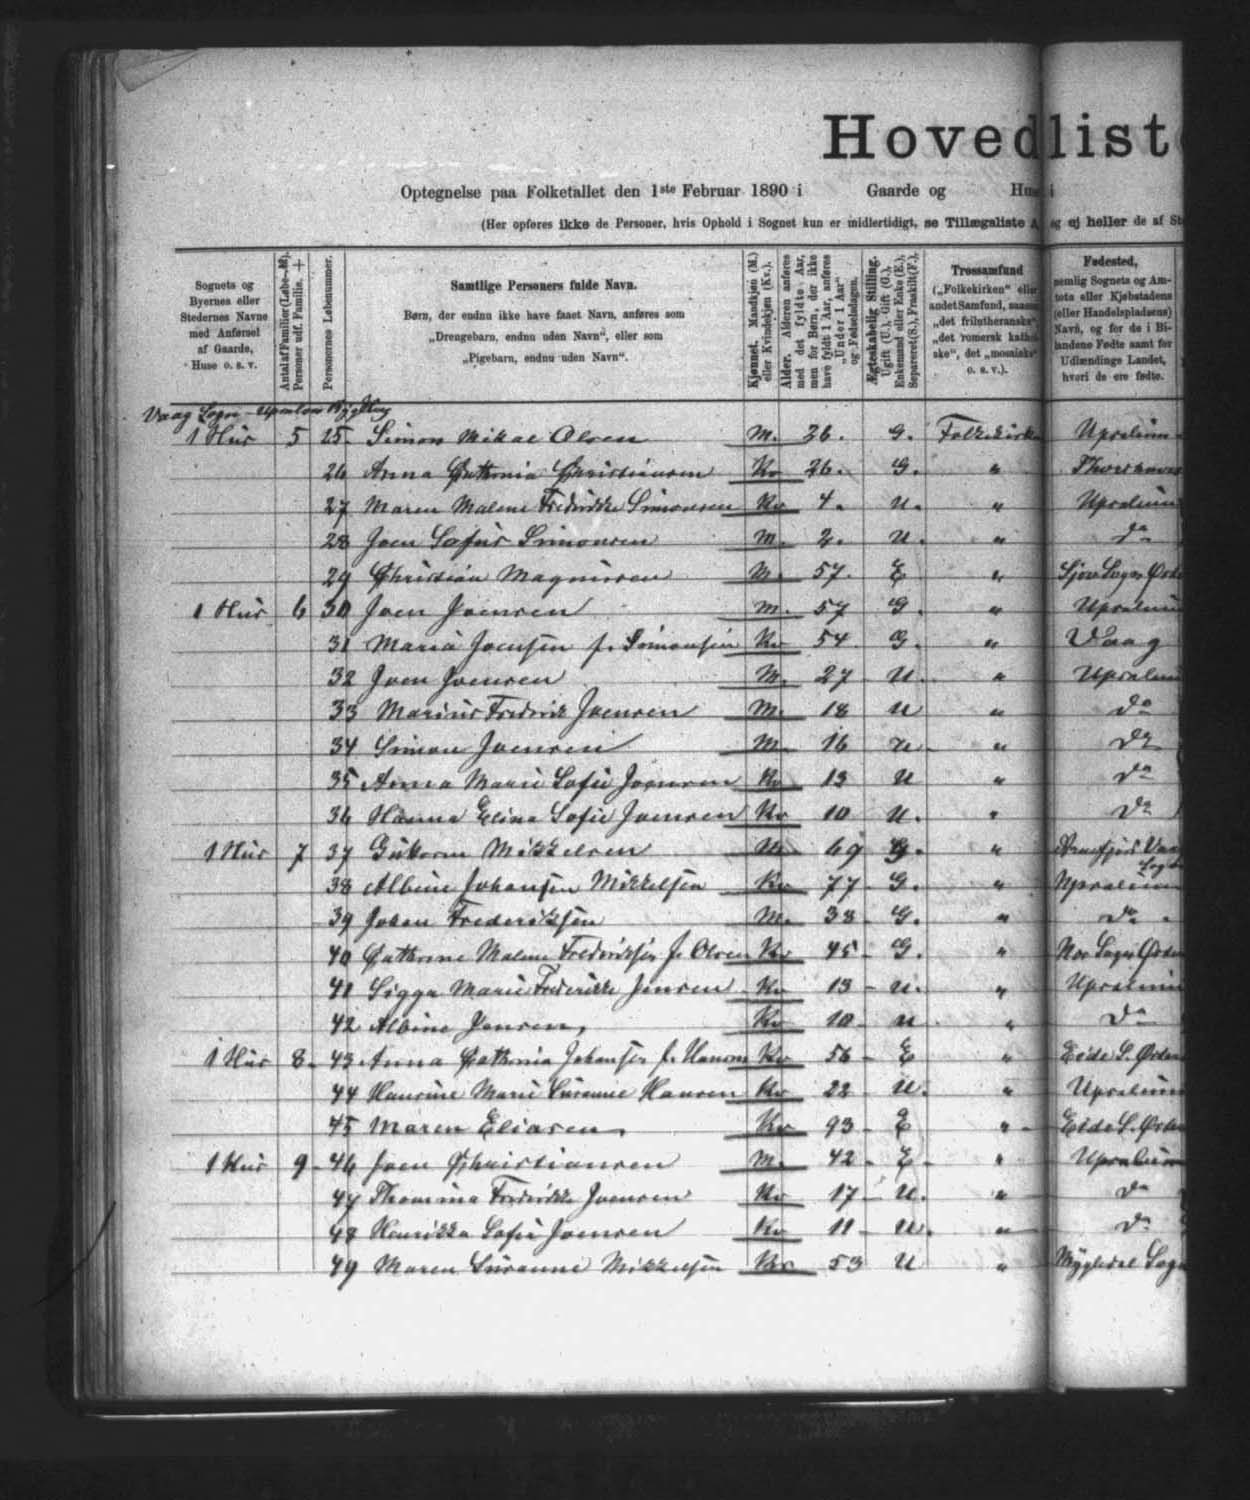 Hovedliste
Optegnelse paa Folketallet den 1ste Februar 1890 i Gaarde og Huse i
(Her opføres ikke de Personer, hvis Ophold i Sognet kun er midlertidigt, se Tillægsliste A, og ej heller de af St
Sognets og Byernes eller Stedernes Navne med Anførsel af Gaarde, Huse o. s. v.
Antal af Familier (Løbe-№). Personer udf. Familie. +
Personernes Løbenummer.
Samtlige Personers fulde Navn.
Børn, der endnu ikke have faaet Navn, anføres som
„Drengebarn, endnu uden Navn“, eller som
„Pigebarn, endnu uden Navn“.
Kjønnet. Mandkjøn (M.) eller Kvindekjøn (Kv.).
Alder. Alderen anføres med det fyldte Aar, men for Børn, der ikke have fyldt 1 Aar, anføres „Under 1 Aar“ og Fødselsdagen.
Ægteskabelig Stilling. Ugift (U.), Gift (G.), Enkemand eller Enke (E.), Separeret (S.), Fraskilt (F.).
Trossamfund („Folkekirken“ eller andet Samfund, saasom „det frilutheranske“, „det romersk katholske“, det „mosaiske“ o. s. v.).
Fødested, nemlig Sognets og Amtets eller Kjøbstadens (eller Handelspladsens) Navn, og for de i Bilandene Fødte samt for Udlændinge Landet, hvori de ere fødte.
Vaag Sogn
1 Hus 5 25 Simon Mikal Olsen M. 36. G. Folkekirke
26 Anna Cathrina Christiansen Kv 26. G. "
27 Maren Malene Frederikke Simonsen Kv 4. U. "
28 Joen Sofus Simonsen M. 2. U. " do
29 Christian Magnussen M. 57. E "
1 Hus 6 30 Joen Joensen M. 57 G. "
31 Maria Joensen f. Simonsen Kv 54 G. " Vaag
32 Joen Joensen M. 27 U. "
33 Marius Frederik Joensen M. 18 U " do
34 Simon Joensen M 16 U " do
35 Anna Marie Sofie Joensen Kv 13 U " do
36 Hanna Elina Sofie Joensen Kv 10 U. " do
1 Hus 7 37 Mikkelsen M. 69 G. "
38 Albine Johansen Mikkelsen Kv 77 G. "
39 Johan Frederiksen M. 38 G. " do
40 Cathrine Malene Frederiksen f. Olsen Kv 45 G. "
41 Sigga Marie Frederikke Jensen Kv 13 U. "
42 Albine Jensen, Kv 10 U " do
1 Hus 8 43 Anna Cathrina Johansen f. Hansen Kv 56 E "
44 Hansine Marie Susanne Hansen Kv 22 U. "
45 Maren Eliasen Kv 93 E "
1 Hus 9 46 Joen Christiansen M. 42 E "
47 Thomina Frederikke Joensen Kv 17 U. " do
48 Henrikka Sofie Joensen Kv 11 U. " do
49 Maren Susanne Mikkelsen Kv 53 U "